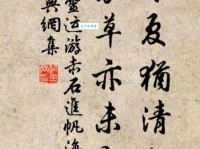 夏猶清
草亦未
靈運游赤石進帆海
興綱集